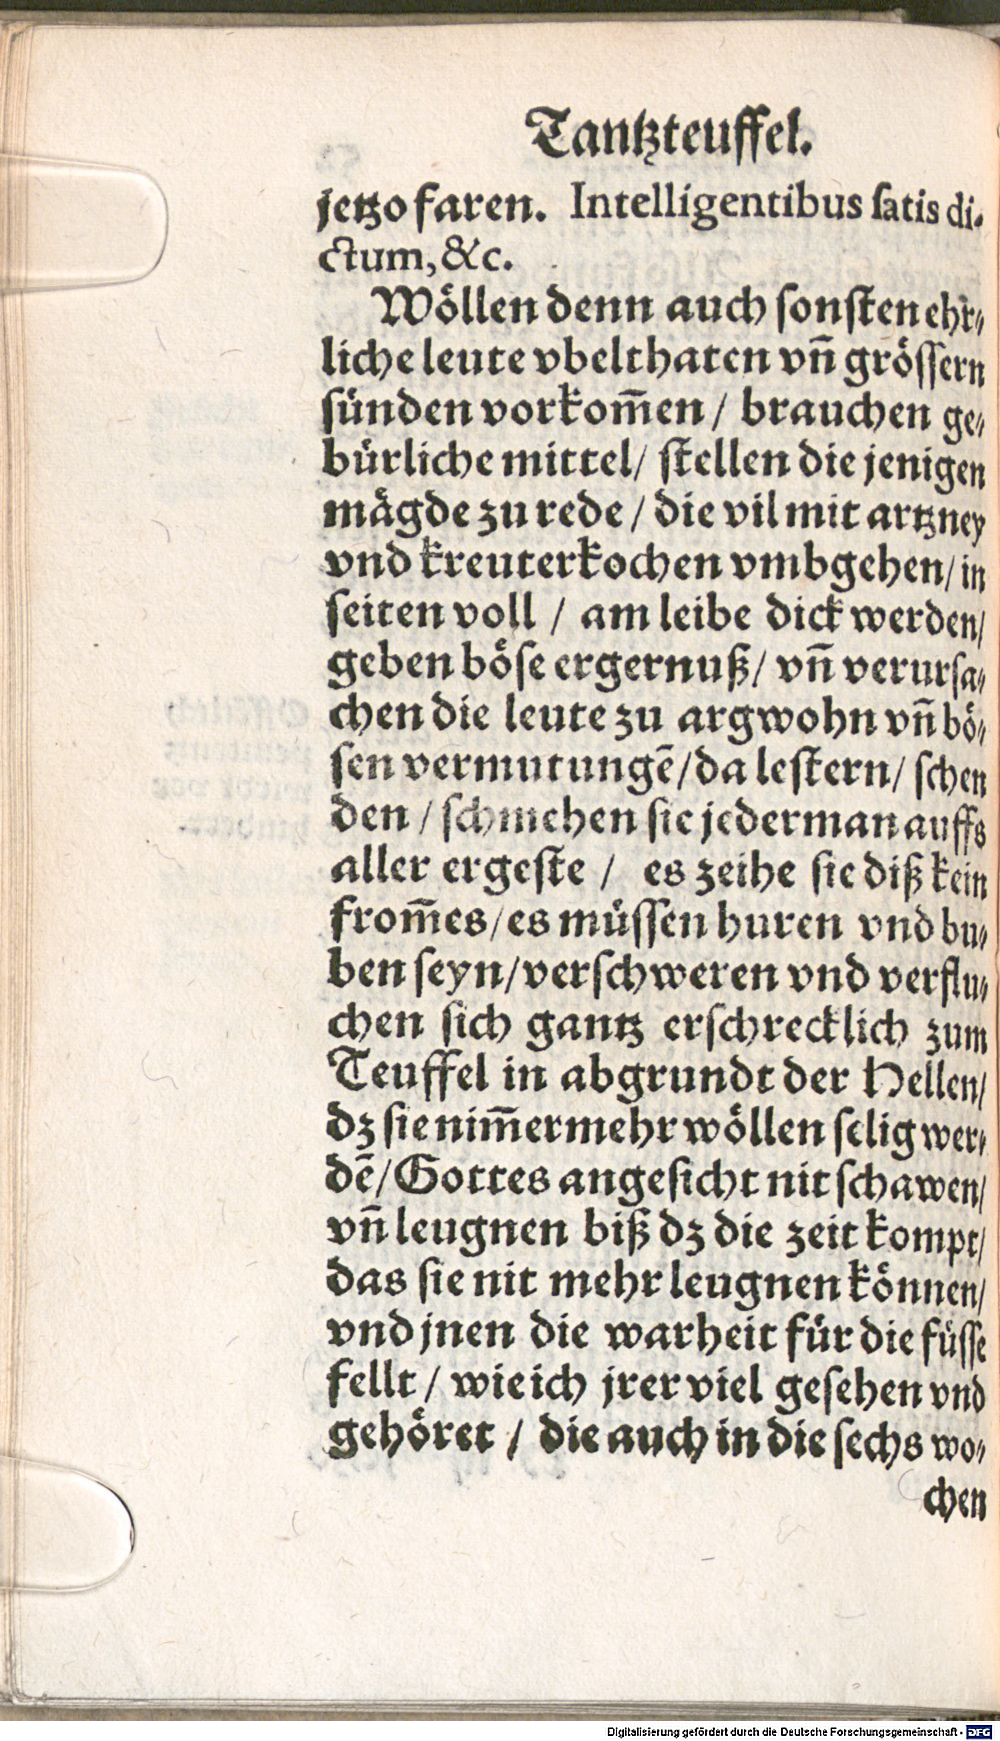 Tantzteuffel.
jetzo faren. Intelligentibus ſatis di-
ctum, &c.
Wöllen denn auch ſonſten ehr⸗
liche leute vbelthaten vn̄ gröſſern
ſünden vorkom̄en / brauchen ge⸗
bürliche mittel / ſtellen die jenigen
mägde zu rede / die vil mit artzney
vnd kreuterkochen vmbgehen / in
ſeiten voll / am leibe dick werden /
geben böſe ergernuß / vn̄ verurſa⸗
chen die leute zu argwohn vn̄ bö⸗
ſen vermutungē / da leſtern / ſchen
den / ſchmehen ſie jederman auffs
aller ergeſte / es zeihe ſie diß kein
from̄es / es müſſen huren vnd bu⸗
ben ſeyn / verſchweren vnd verflu⸗
chen ſich gantz erſchrecklich zum
Teuffel in abgrundt der Hellen /
dz ſie nim̄ermehr wöllen ſelig wer⸗
dē / Gottes angeſicht nit ſchawen /
vn̄ leugnen biß dz die zeit kompt /
das ſie nit mehr leugnen können /
vnd jnen die warheit für die füſſe
fellt / wie ich jrer viel geſehen vnd
gehöret / die auch in die ſechs wo⸗
chen
Digitalisierung gefördert durch die Deutsche Forschungsgemeinschaft - DFG